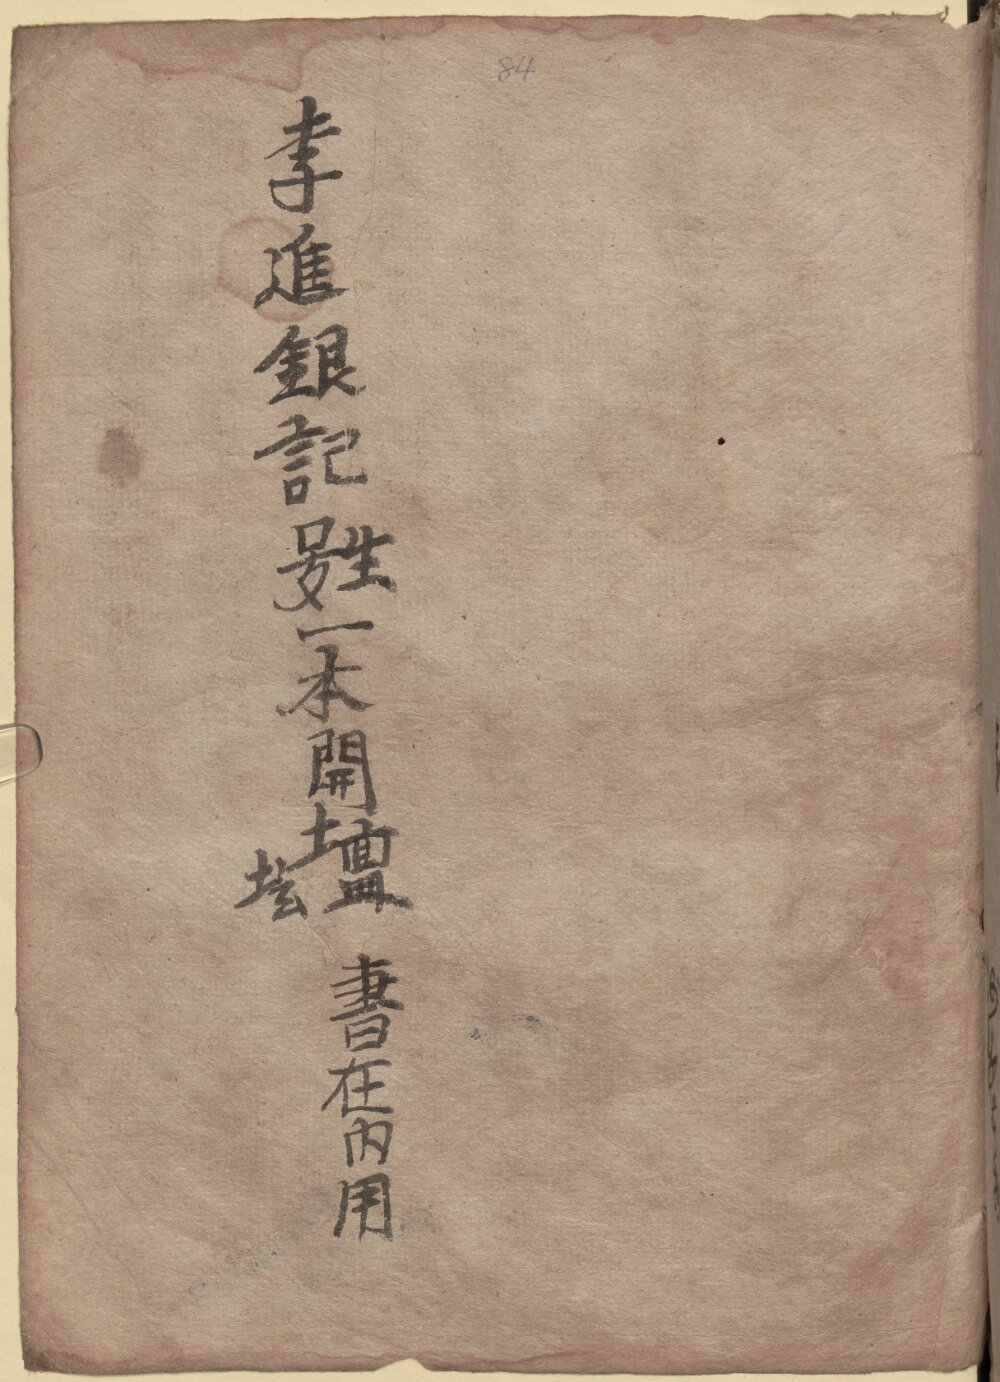 84
李進銀記姓号一本開壇書在內用
坛